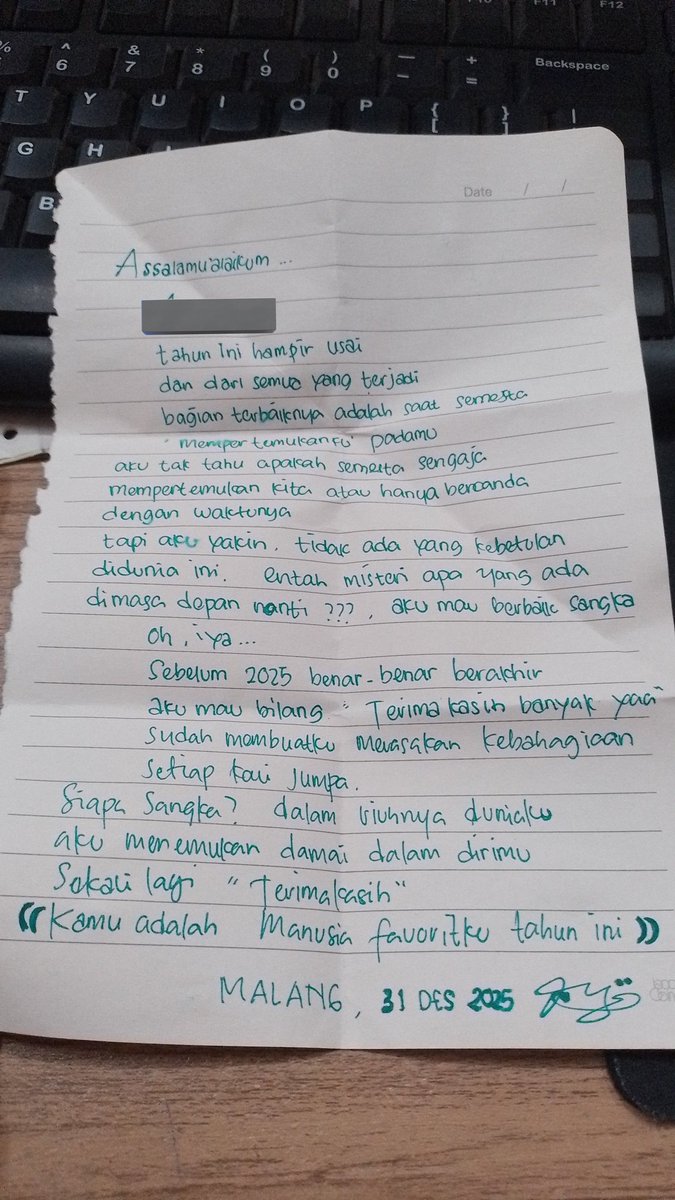 % ^ & * ( ) — + F11 F12
5 6 7 8 9 0 - = Backspace
T Y U I O P { [ } ] |
G H
B
Date / /
Assalamu'alaikum ...
tahun ini hampir usai
dan dari semua yang terjadi
bagian terbaiknya adalah saat semesta
"mempertemukanku" padamu
aku tak tahu apakah semesta sengaja
mempertemukan kita atau hanya bercanda
dengan waktunya
tapi aku yakin, tidak ada yang kebetulan
didunia ini. entah misteri apa yang ada
dimasa depan nanti ???, aku mau berbaik sangka
oh, iya...
Sebelum 2025 benar-benar berakhir
aku mau bilang "Terima kasih banyak yaa"
sudah membuatku merasakan kebahagiaan
setiap kali jumpa.
Siapa Sangka? dalam riuhnya duniaku
aku menemukan damai dalam dirimu
Sekali lagi "Terimakasih"
((Kamu adalah Manusia favoritku tahun ini))
MALANG, 31 DES 2025